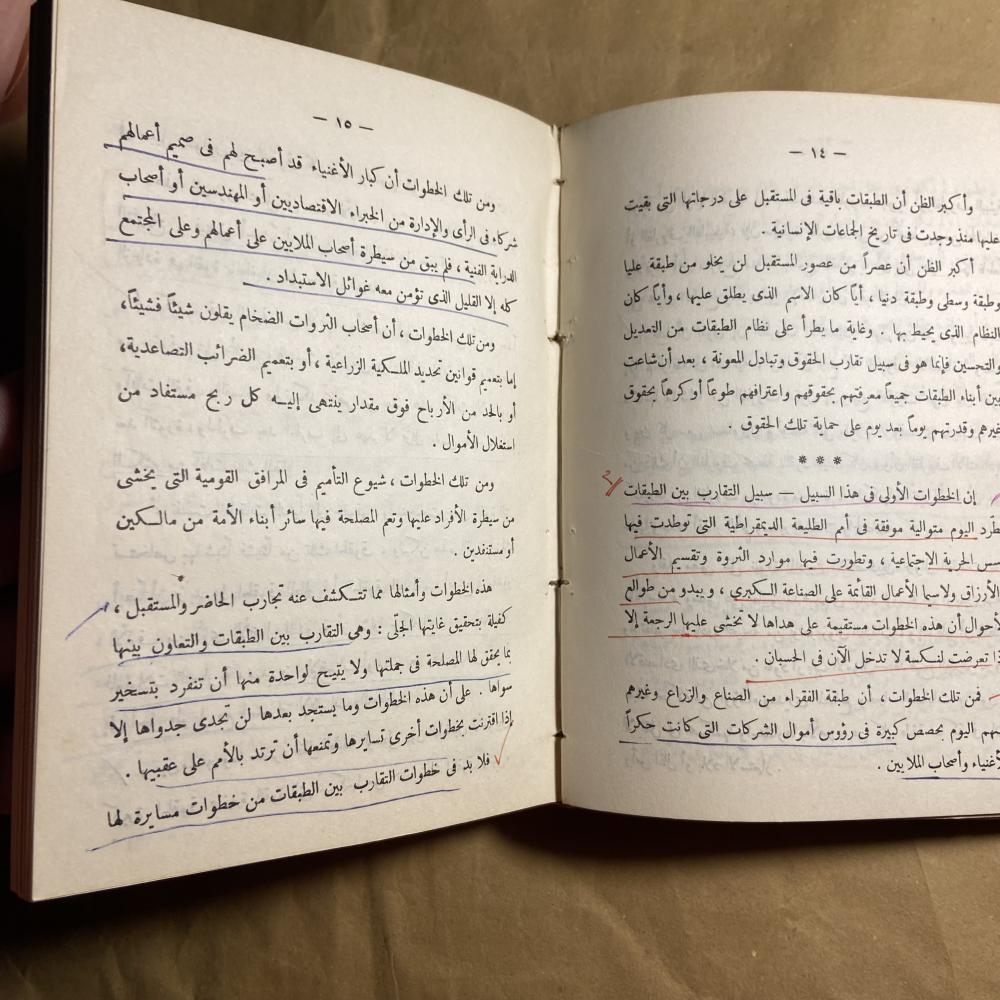 — ١٤ —
وأكبر الظن أن الطبقات باقية فى المستقبل على درجاتها التى بقيت
عليها منذ وجدت فى تاريخ الجماعات الإنسانية .
أكبر الظن أن عصراً من عصور المستقبل لن يخلو من طبقة عليا
وطبقة وسطى وطبقة دنيا ، أيّاً كان الاسم الذى يطلق عليها ، وأيّاً كان
النظام الذى يحيط بها . وغاية ما يطرأ على نظام الطبقات من التعديل
والتحسين فإنما هو فى سبيل تقارب الحقوق وتبادل المعونة ، بعد أن شاعت
بين أبناء الطبقات جميعاً معرفتهم بحقوقهم واعترافهم طوعاً أو كرهاً بحقوق
غيرهم وقدرتهم يوماً بعد يوم على حماية تلك الحقوق .
* * *
إن الخطوات الأولى فى هذا السبيل — سبيل التقارب بين الطبقات
طّرد اليوم متوالية موفقة فى أمم الطليعة الديمقراطية التى توطدت فيها
سس الحرية الاجتماعية ، وتطورت فيها موارد الثروة وتقسيم الأعمال
الأرزاق ولاسيما الأعمال القائمة على الصناعة الكبرى ، ويبدو من طوالع
لأحوال أن هذه الخطوات مستقيمة على هداها لا تخشى عليها الرجعة إلا
ذا تعرضت لنكسة لا تدخل الآن فى الحسبان .
فمن تلك الخطوات ، أن طبقة الفقراء من الصناع والزراع وغيرهم
نهم اليوم بحصص كبيرة فى رؤوس أموال الشركات التى كانت حكراً
لأغنياء وأصحاب الملايين .
— ١٥ —
ومن تلك الخطوات أن كبار الأغنياء قد أصبح لهم فى صميم أعمالهم
شركاء فى الرأى والإدارة من الخبراء الاقتصاديين أو المهندسين أو أصحاب
الدراية الفنية ، فلم يبق من سيطرة أصحاب الملايين على أعمالهم وعلى المجتمع
كله إلا القليل الذى تؤمن معه غوائل الاستبداد .
ومن تلك الخطوات ، أن أصحاب الثروات الضخام يقلون شيئاً فشيئاً ،
إما بتعميم قوانين تحديد الملكية الزراعية ، أو بتعميم الضرائب التصاعدية ،
أو بالحد من الأرباح فوق مقدار ينتهى إليه كل ربح مستفاد من
استغلال الأموال .
ومن تلك الخطوات ، شيوع التأميم فى المرافق القومية التى يخشى
من سيطرة الأفراد عليها وتعم المصلحة فيها سائر أبناء الأمة من مالكين
أو مستنفدين .
هذه الخطوات وأمثالها مما تتكشف عنه تجارب الحاضر والمستقبل ،
كفيلة بتحقيق غايتها الجلّى : وهى التقارب بين الطبقات والتعاون بينها
بما يحقق لها المصلحة فى جملتها ولا يتيح لواحدة منها أن تنفرد بتسخير
سواها . على أن هذه الخطوات وما يستجد بعدها لن تجدى جدواها إلا
إذا اقترنت بخطوات أخرى تسايرها وتمنعها أن ترتد بالأمم على عقبيها .
فلا بد فى خطوات التقارب بين الطبقات من خطوات مسايرة لها